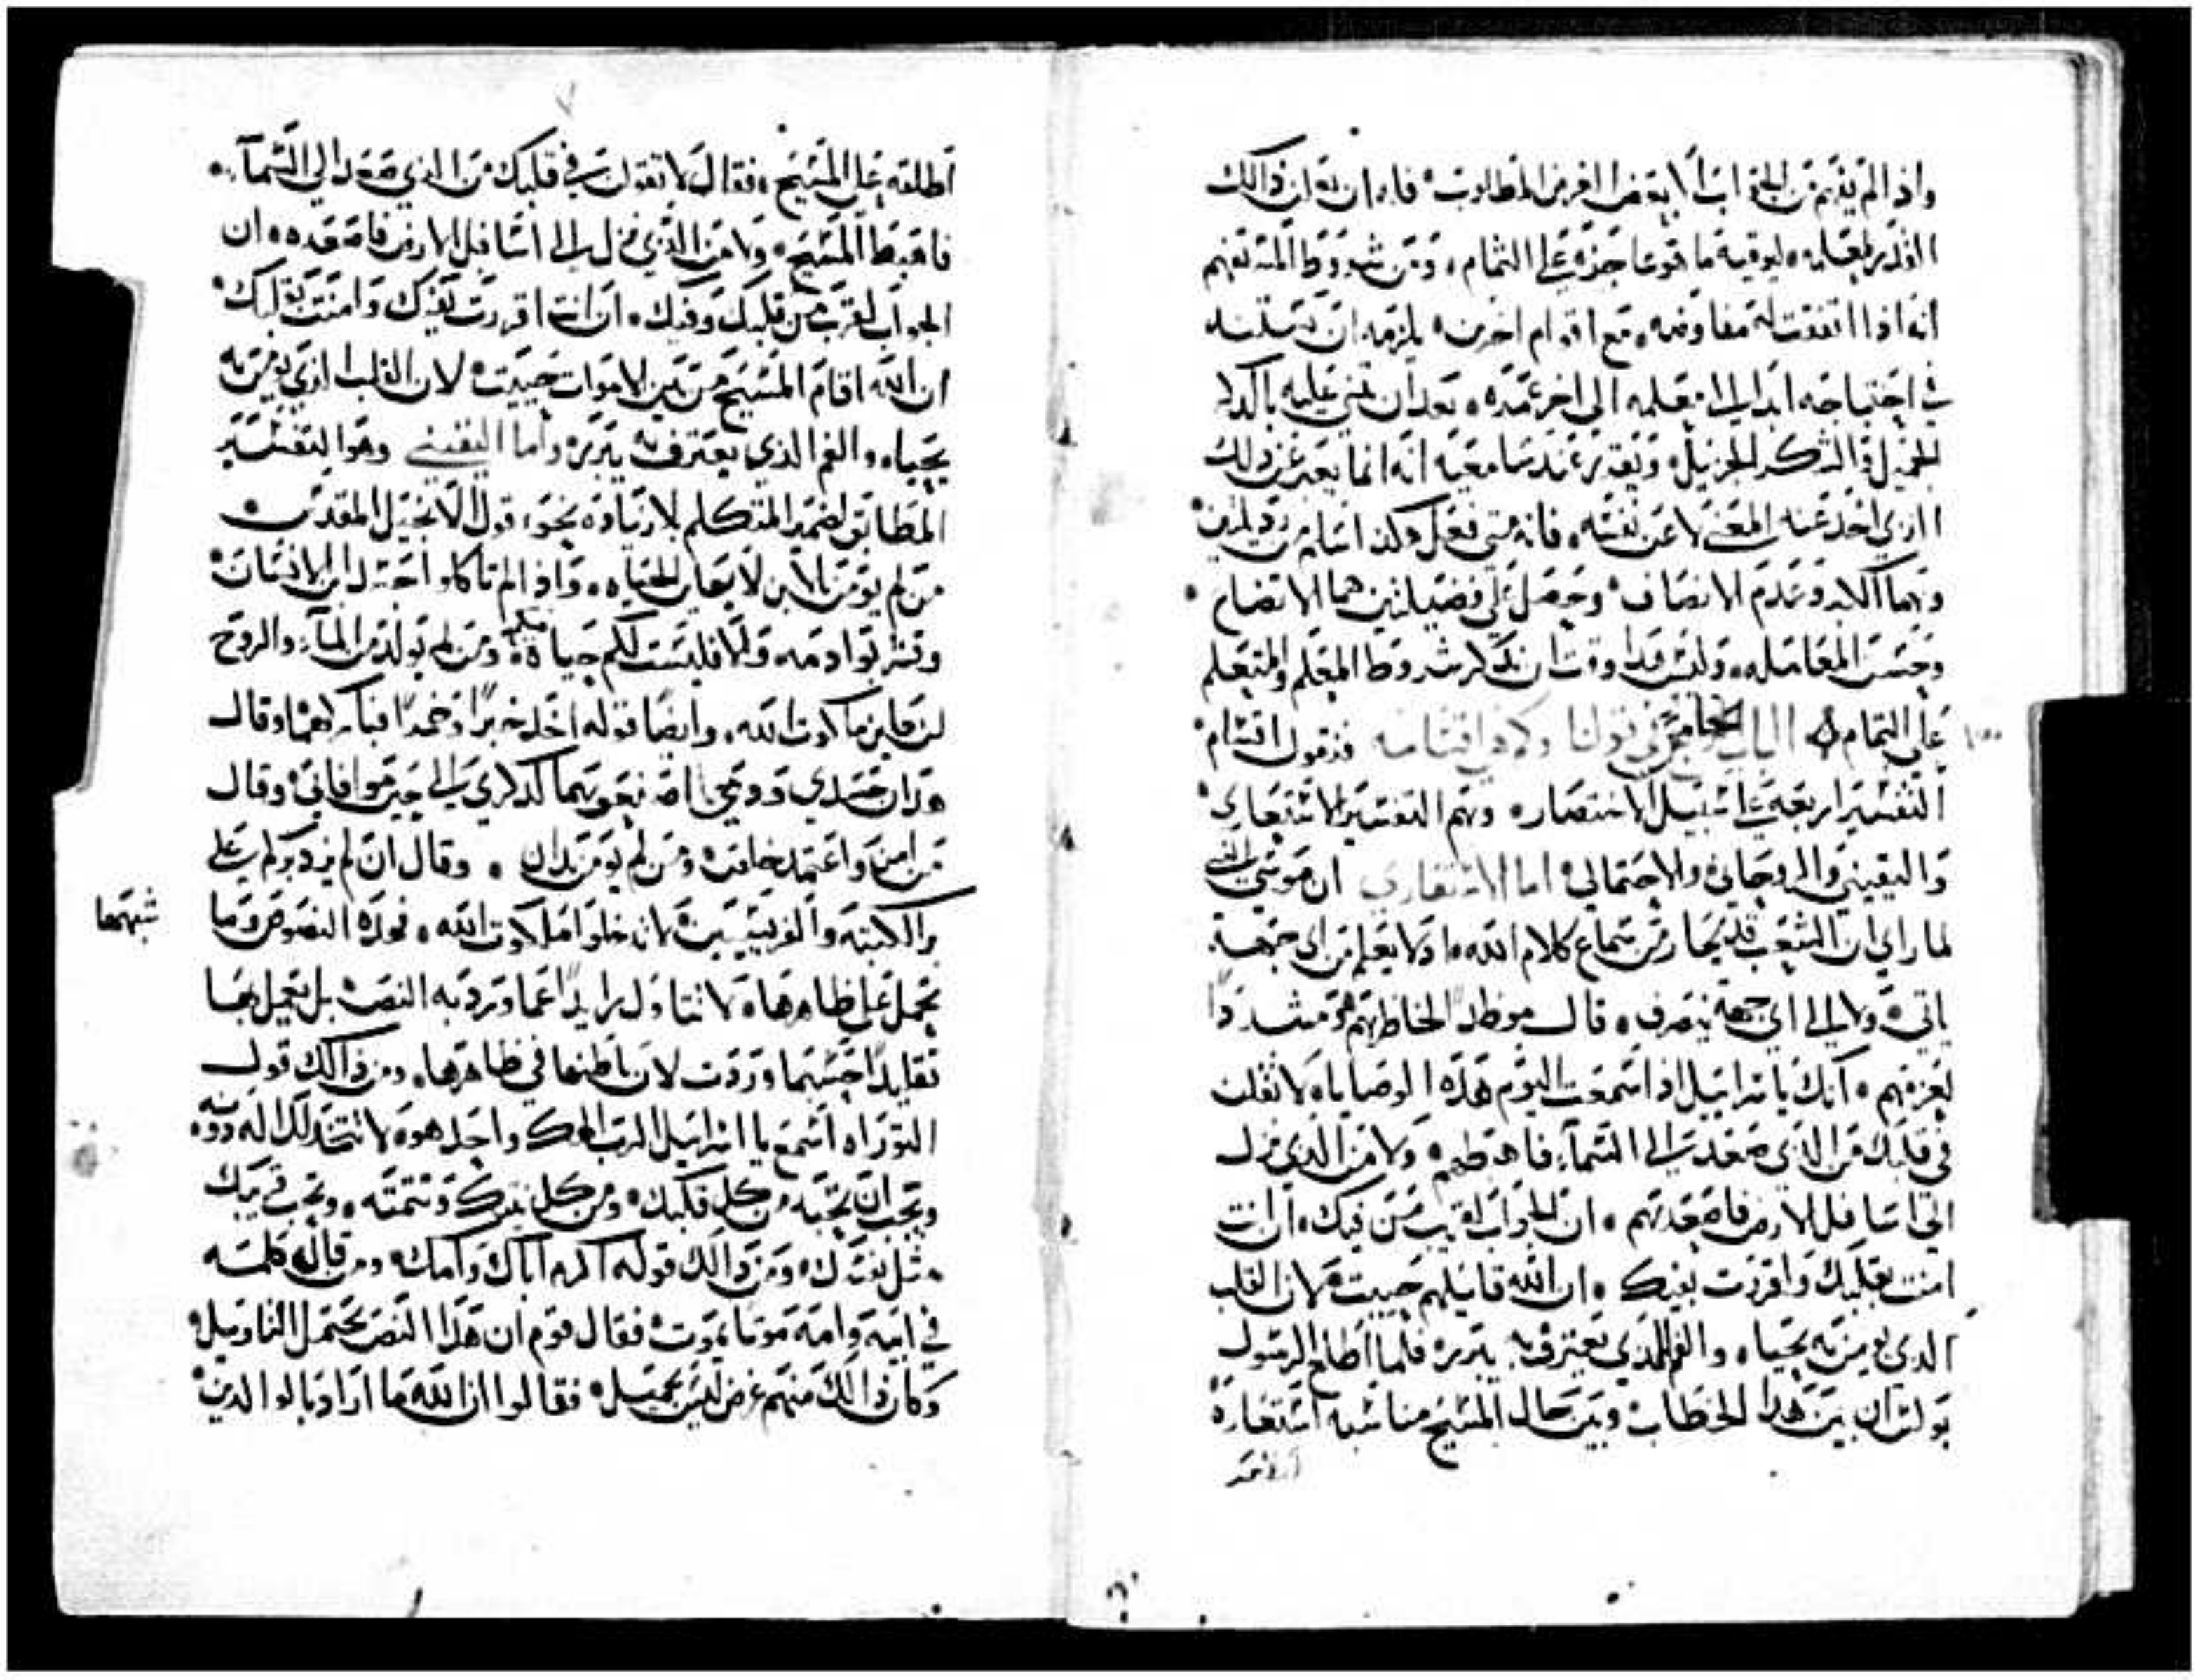 واذا لم يفهم من الجواب الا بعض الغرض المطلوب
ليوفيه ما هو عاجز على التمام ومن شروط المتفهم
انه اذا اتفقت له مفاوضه مع اقوام اخرين يلزمه ان
في احتياجه ابدا الى معلمه الى اخر عمره بعد ان يثني عليه بالذكر
الجميل والشكر الجزيل عند سامعيه انه انما يعبر عن ذلك
الذي اخذ عنه المعنى لا عن نفسه فانه متى فعل هكذا سلم من رذيلتين
وهما الكبر وعدم الانصاف وحصل على فضيلتين هما الاتضاع
وحسن المعامله وليس هذا وقت ان نذكر شروط المعلم والمتعلم
على التمام الباب الخامس في قولنا وكم هي اقسامه فنقول اقسام
التفسير اربعه على سبيل الاختصار وهم التفسير الاستعاري
واليقيني والروحاني والاحتمالي اما الاستعاري ان موسى النبي
لما راى ان الشعب قد يحار من سماع كلام الله ولا يعلم من اي جهة
ياتي ولا الى اي جهة ينصرف قال موطدا لخاطرهم ومشددا
لعزمهم انك يا اسراييل اذا سمعت اليوم هذه الوصايا لا تقلن
في قلبك من الذي صعد الى السماء فاهبطهم ولا من الذي نزل
الى اسافل الارض فاصعدهم ان الجواب لقريب من فيك ان انت
امنت بقلبك واقررت بفيك ان الله قايلهم حييت لان القلب
الذي يومن به يحيا والفم الذي يعترف به يتبرر فلما اطلع الرسول
بولس ان بين هذا الخطاب وبين حال المسيح مناسبه استعاره
اطلقه على المسيح فقال لا تقولن في قلبك من الذي صعد الى السماء
فاهبط المسيح ولا من الذي نزل الى اسافل الارض فاصعده ان
الجواب لقريب من قلبك وفيك ان انت اقررت بفيك وامنت بقلبك
ان الله اقام المسيح من بين الاموات حييت لان القلب الذي يومن به
يحيا والفم الذي يعترف به يتبرر واما اليقيني وهو التفسير
المطابق لضمير المتكلم بلا زياده نحو قول الانجيل المقدس
من لم يومن بالابن لا يعاين الحياه واذا لم تاكلوا جسد ابن الانسان
وتشربوا دمه والا فليست لكم حياة فيكم ومن لم يولد من الماء والروح
لن يعاين ملكوت الله وايضا قوله اخذ خبزا وخمرا فباركهما وقال
هذان جسدي ودمي اصنعوهما لذكري الى حين موافاتي وقال
من امن واعتمد خلص ومن لم يومن يدان وقال ان لم يزد بركم على
بر الكتبه والفريسيين لا تدخلوا ملكوت الله فهذه النصوص وما
شبهها
تحمل على ظاهرها ولا تتاول بل يعمل بها
تقليدا حسبما وردت لان باطنها في ظاهرها ومن ذالك قول
التوراه اسمع يا اسراييل الرب الهك واحد هو لا تتخذ لك اله دونه
ويجب ان تحبه من كل قلبك ومن كل نفسك ونسمته وتحب قريبك
مثل نفسك ومن ذالك قوله اكرم اباك وامك ومن قال كلمه
في ابيه وامه موتا يموت فقال قوم ان هذا النص يحتمل التاويل
وكان ذالك منهم غرض ليس بجميل فقالوا ان الله ما اراد بالوالدين